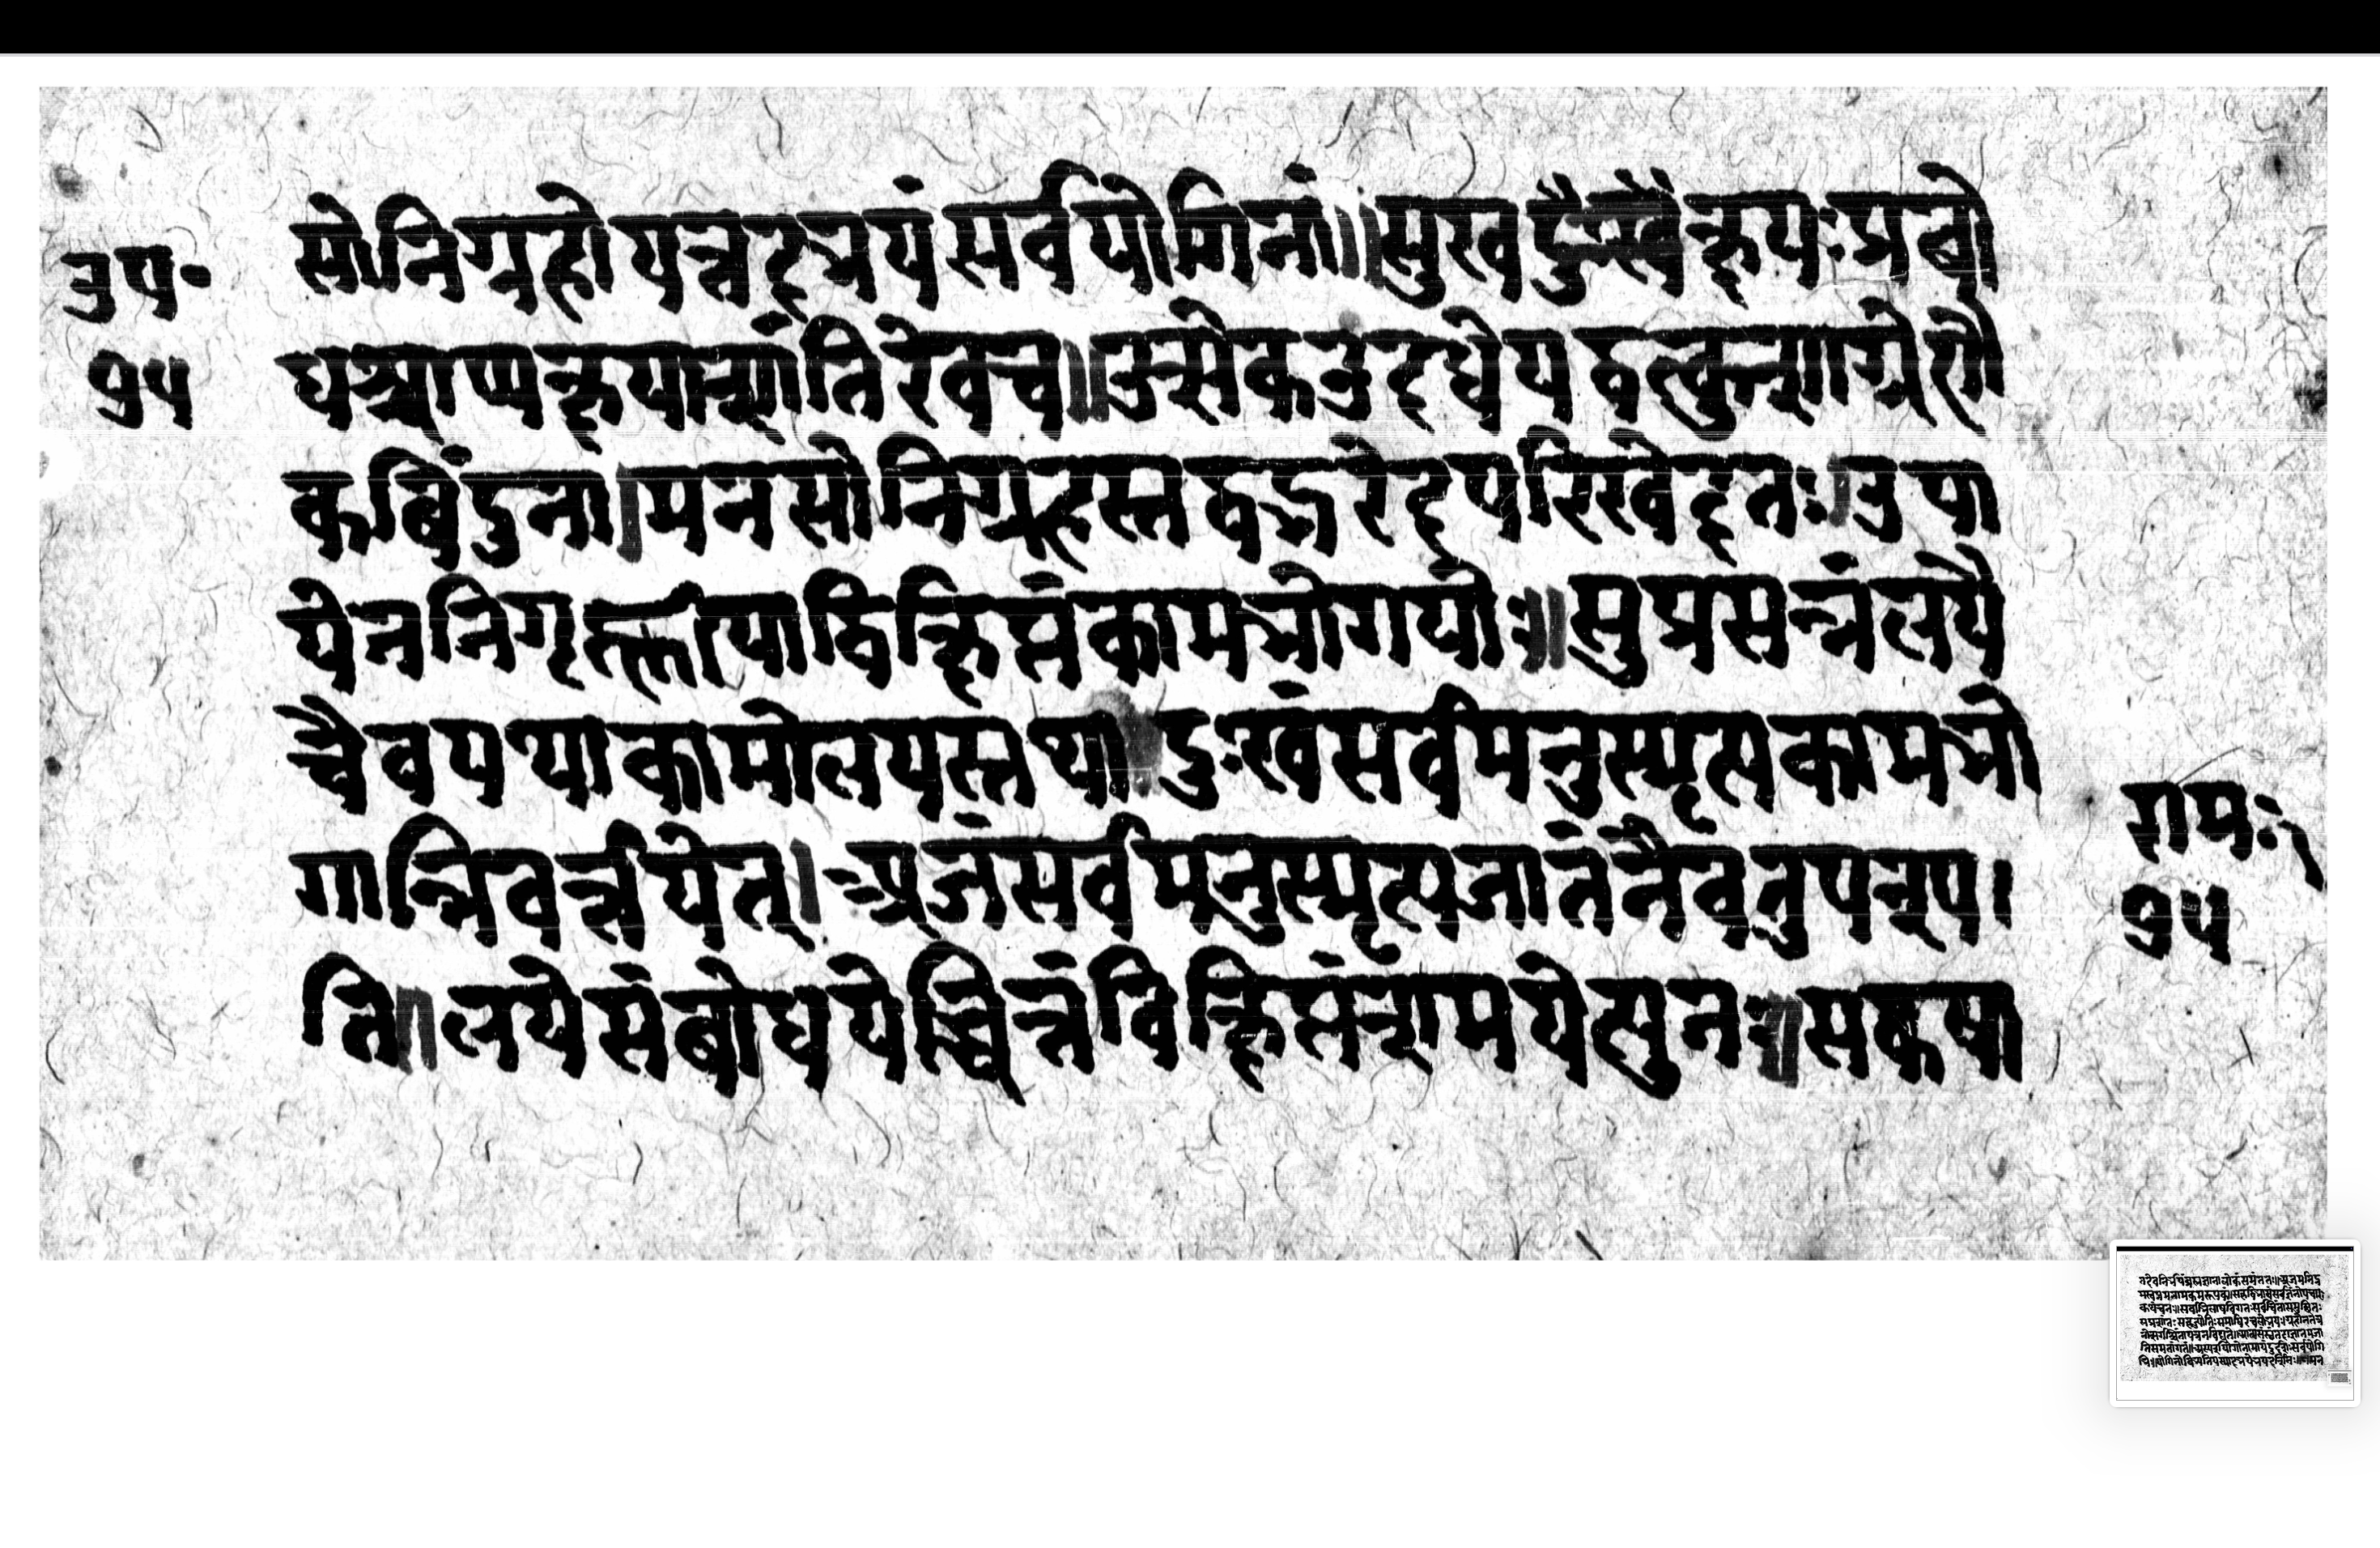 उप॰
१५
सोनिग्रहोयत्तदभयंसर्वयोगिनां॥सुखदुःखक्षयःप्रबो
धश्चाप्यक्षयाशांतिरेवच॥उत्सेकउदधेयद्वत्कुशाग्रेणै
कबिंदुना।मनसोनिग्रहस्तद्वद्भवेदपरिखेदतः।उपा
येननिगृह्णीयाद्विक्षिप्तंकामभोगयोः॥सुप्रसन्नंलये
चैवयथाकामोलयस्तथा।दुःखंसर्वमनुस्मृत्यकामभो
गान्निवर्त्तयेत्।अजंसर्वमनुस्मृत्यजातंनैवनुपश्य।
ति॥लयेसंबोधयेच्चित्तंविक्षिप्तंशमयेत्पुनः॥सकषा
१५